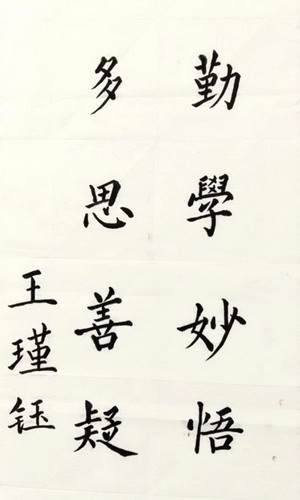 勤學妙悟
多思善疑
王瑾鈺